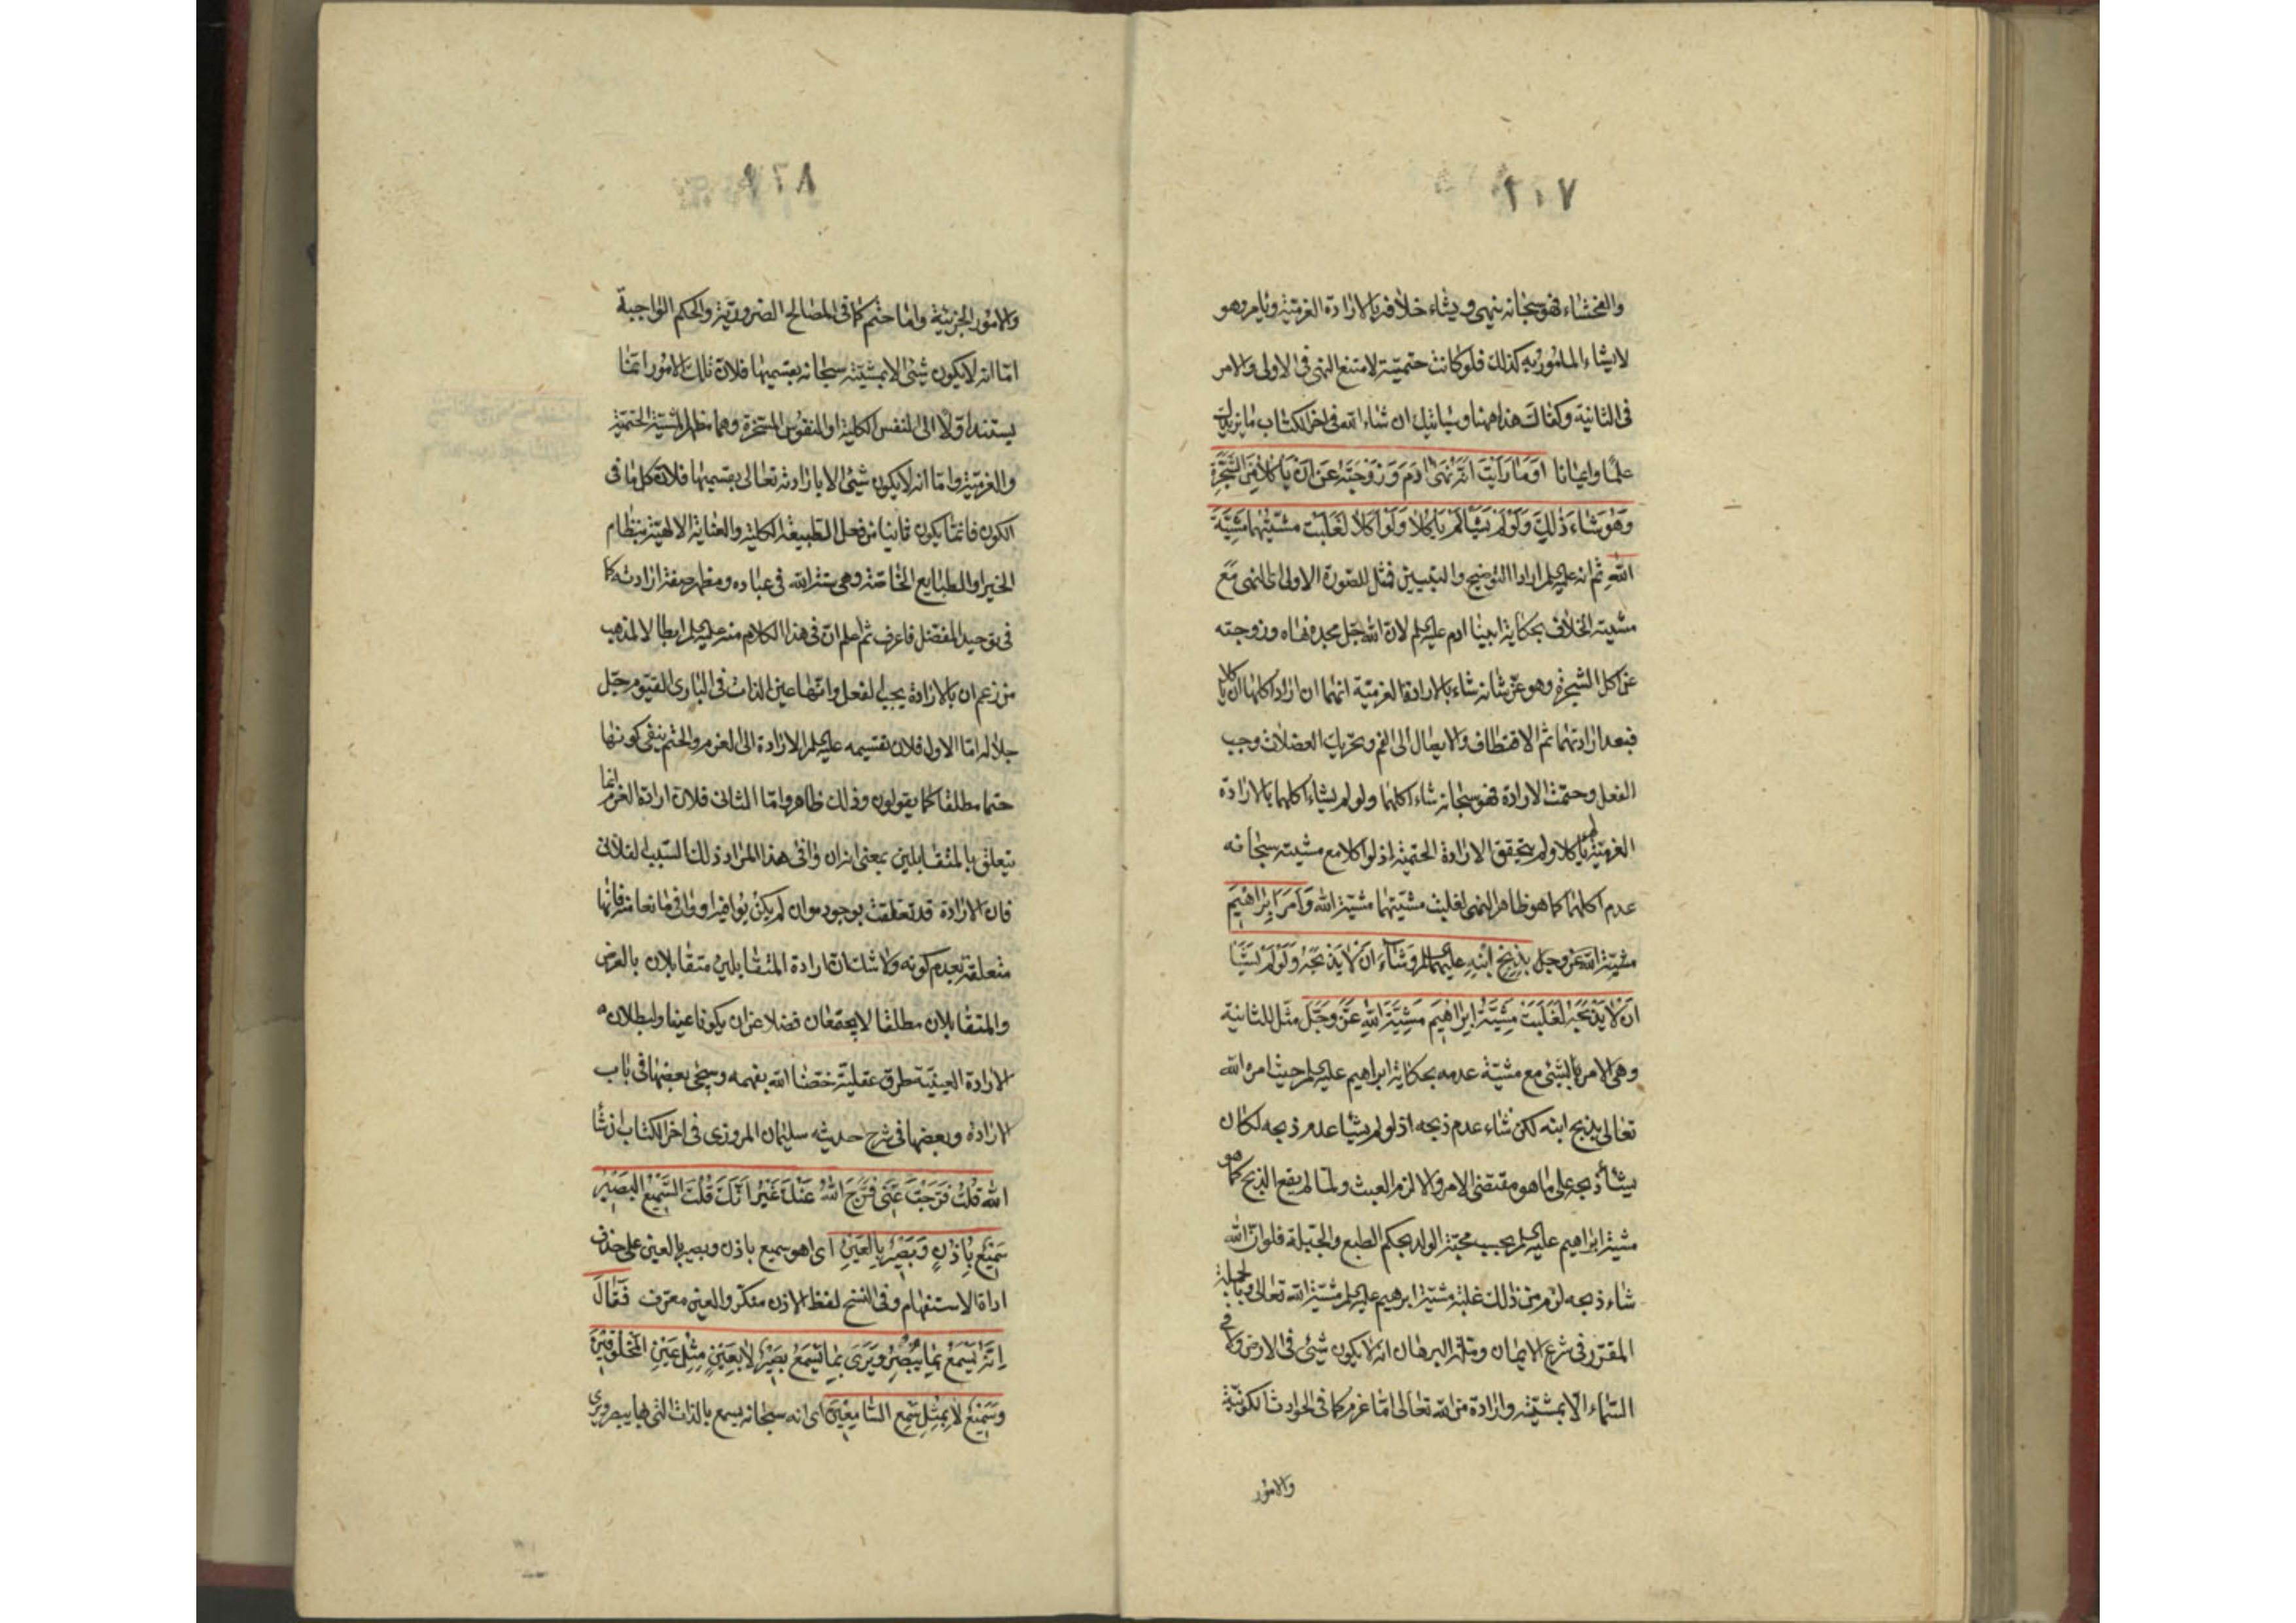 ٢٠٧
والفحشاء فهو سبحانه ينهى ويشاء خلافه بالارادة العزمية ويامر وهو
لا يشاء المامور به كذلك فلو كانت حتمية لامتنع النهى فى الاولى والامر
فى الثانية وكفاك هذا هيهنا وسياتيك ان شاء الله فى اخر الكتاب ما يزيدك
علما وايمانا اَوَمَا رَاَيْتَ اَنَّهُ نَهىٰ ادَمَ وَزَوْجَتَهُ عَنْ اَنْ يَاْكُلا مِنَ الشَّجَرَةِ
وَهُوَ شَاءَ ذٰلِكَ وَلَوْ لَمْ يَشَاْ لَمْ يَاْكُلا وَلَوْ اَكَلا لَغَلَبَتْ مَشِيَّتُهُمَا مَشِيَّةَ
اللهِ ثم انه عليه السلم اراد التوضيح والتبيين فمثل للصورة الاولى اى النهى مع
مشيته الخلاف بحكاية ابينا ادم عليه السلم لان الله جل مجده نهاه وزوجته
عن اكل الشجرة وهو عز شانه شاء بالارادة العزمية انهما ان ارادا اكلها ان ياكلا
فبعد ارادتهما ثم الاقتطاف والايصال الى الفم وتحريك العضلات وجب
الفعل وحتمت الارادة فهو سبحانه شاء اكلهما ولو لم يشاء اكلهما بالارادة
العزمية لم ياكلا ولم يتحقق الارادة الحتمية اذ لو اكلا مع مشيته سبحانه
عدم اكلهما كما هو ظاهر النهى لغلبت مشيتهما مشية الله وَاَمَرَ اِبْرَاهِيمَ
مشية الله عز وجل بِذَبْحِ ابْنِهِ عليهما السلم وَشَاءَ اَنْ لَا يَذْبَحَهُ وَلَوْ لَمْ يَشَاْ
اَنْ لَا يَذْبَحَهُ لَغَلَبَتْ مَشِيَّةُ اِبْرَاهِيمَ مَشِيَّةَ اللهِ عَزَّ وَجَلَّ مثل للثانية
وهى الامر بالشئ مع مشية عدمه بحكاية ابراهيم عليه السلم حيث امره الله
تعالى بذبح ابنه لكن شاء عدم ذبحه اذ لو لم يشا عدم ذبحه لكان
يشأ ذبحه على ما هو مقتضى الامر والا لزم العبث ولما لم يقع الذبح كما هو
مشية ابراهيم عليه السلم بحسب محبة الولد بحكم الطبع والجبلة فلو ان الله
شاء ذبحه لزم من ذلك غلبة مشية ابرهيم عليه السلم مشية الله تعالى وبالجملة
المقرر فى شرع الايمان وملة البرهان انه لا يكون شئ فى الارض ولا فى
السماء الا بمشية وارادة من الله تعالى اما عزم كما فى الحوادث الكونية
والامور
٢٠٨
والامور الجزئية واما حتم كما فى المصالح الضرورية والحكم الواجبة
اما انه لا يكون شئ الا بمشيته سبحانه بقسميها فلان تلك الامور انما
يستند اولا الى النفس الكلية او النفوس المسخرة وهما مظهر المشية الحتمية
والعزمية واما انه لا يكون شئ الا بارادته تعالى بقسميها فلان كل ما فى
الكون فانما يكون ثانيا من فعل الطبيعة الكلية والعناية الالهية بنظام
الخير او الطبايع الخاصة وهى سنة الله فى عباده ومظهر صفة ارادته كما
فى توحيد المفضل فاعرف ثم اعلم ان فى هذا الكلام منه عليه السلم ابطالا لمذهب
من زعم ان بالارادة يجب الفعل وانها عين الذات فى البارى القيوم جل
جلاله اما الاول فلان تقسيمه عليه السلم الارادة الى العزم والحتم ينفى كونها
حتما مطلقا كما يقولون وذلك ظاهر واما الثانى فلان ارادة العزم انما
يتعلق بالمتقابلين بمعنى ان وافى هذا المراد ذلك السبب الفلانى
فان الارادة قد تعلقت بوجوده وان لم يكن يوافيه او وافى مانعا منه فانها
متعلقة بعدم كونه ولا شك ان ارادة المتقابلين متقابلان بالعرض
والمتقابلان مطلقا لا يجتمعان فضلا عن ان يكونا عينا ولبطلان
الارادة العينية طرق عقلية خصنا الله بفهمه وسيجئ بعضها فى باب
الارادة وبعضها فى شرح حديث سليمان المروزى فى اخر الكتاب ان شا
الله قُلْتُ فَرَّجْتَ عَنّى فَرَّجَ اللهُ عَنْكَ غَيْرَ اَنَّكَ قُلْتَ السَّمِيعُ الْبَصِيرُ
سَمِيعٌ بِاُذُنٍ وَبَصِيرٌ بِالْعَيْنِ اى اهو سميع باذن وبصير بالعين على حذف
اداة الاستفهام وفى النسخ لفظ الاذن منكر والعين معرف فَقَالَ
اِنَّهُ يَسْمَعُ بِمَا يُبْصِرُ وَيَرىٰ بِمَا يَسْمَعُ بَصِيرٌ لَا بِعَيْنٍ مِثْلِ عَيْنِ الْمَخْلُوقِينَ
وَسَمِيعٌ لَا بِمِثْلِ سَمْعِ السَّامِعِينَ اى انه سبحانه يسمع بالذات التى بها يبصر ويرى